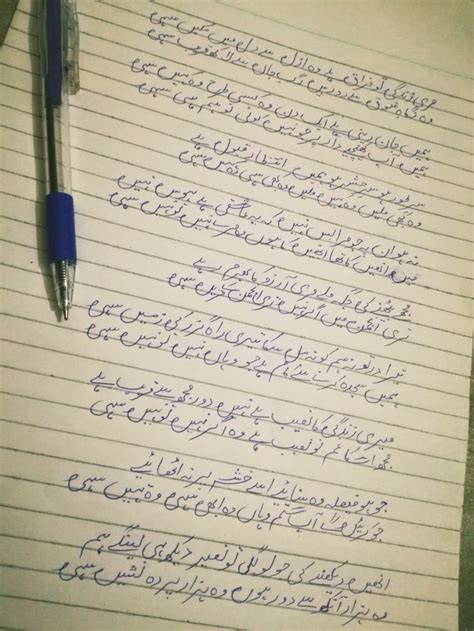 مری زندگی تو فراق ہے وہ ازل سے دل میں مکیں سہی
وہ نگاہ شوق سے دور ہیں رگ جاں سے لاکھ قریب سہی
ہمیں جان دینی ہے اک دن وہ کسی طرح وہ کہیں سہی
ہمیں آپ کھینچیے دار پر جو نہیں کوئی تو ہم ہی سہی
سر طور ہو سر حشر ہو ہمیں انتظار قبول ہے
وہ کبھی ملیں وہ کہیں ملیں وہ کبھی سہی وہ کہیں سہی
نہ ہو ان پہ جو مرا بس نہیں کہ یہ عاشقی ہے ہوس نہیں
میں انھیں کا تھا انھیں کا ہوں وہ میرے نہیں تو نہیں سہی
مجھے بیٹھنے کی جگہ ملے مری آرزو کا بھرم رہے
تری انجمن میں اگر نہیں تری انجمن کے قریں سہی
تیرا در تو نہ ہم کو مل سکا تیری راہ گزر کی زمیں سہی
ہمیں سجدہ کرنے سے کام ہے جو وہاں نہیں تو یہیں سہی
میری زندگی کا نصیب ہے نہیں دور مجھ سے قریب ہے
مجھے اسکا غم تو نصیب ہے وہ اگر نہیں تو نہیں سہی
جو ہو فیصلہ وہ سنائیے اسے حشر پر نہ اٹھائیے
جو کریں گے آپ ستم وہاں وہ ابھی سہی وہ یہیں سہی
انھیں دیکھنے کی جو لو لگی تو نصیر دیکھ ہی لینگے ہم
وہ ہزار آنکھ سے دور ہوں وہ ہزار پردہ نشیں سہی